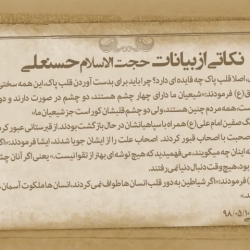 نکاتی از بیانات حجت الاسلام حسنعلی
، اصلا قلب پاک چه فایده ای دارد؟ چرا باید برای بدست آوردن قلب پاک، این همه سختی
ق(ع) فرمودند:«شیعیان ما دارای چهار چشم هستند، دو چشم در صورت دارند و دو
ست، همه مردم چنین هستند، ولی دو چشم قلبشان کور است جز شیعیان ما»
نگ صفین امام علی(ع) همراه با سپاهیانشان در حال بازگشت بودند، از قبرستانی عبور کر
صحبت با اصحاب قبور کردند. اصحاب علت را از ایشان جویا شدند، ایشان فرمودند:«اگ
که اینان چه میگویند، می فهمیدید که هیچ توشه ای بهتر از تقوا نیست.» یعنی اگر آنان چش
بود، هیچ وقت دنبال دنیا نمی رفتند.
) فرمودند:«اگر شیاطین به دور قلب انسان ها طواف نمی کردند، انسان ها ملکوت آسمان
۹۸/۰۵/۱